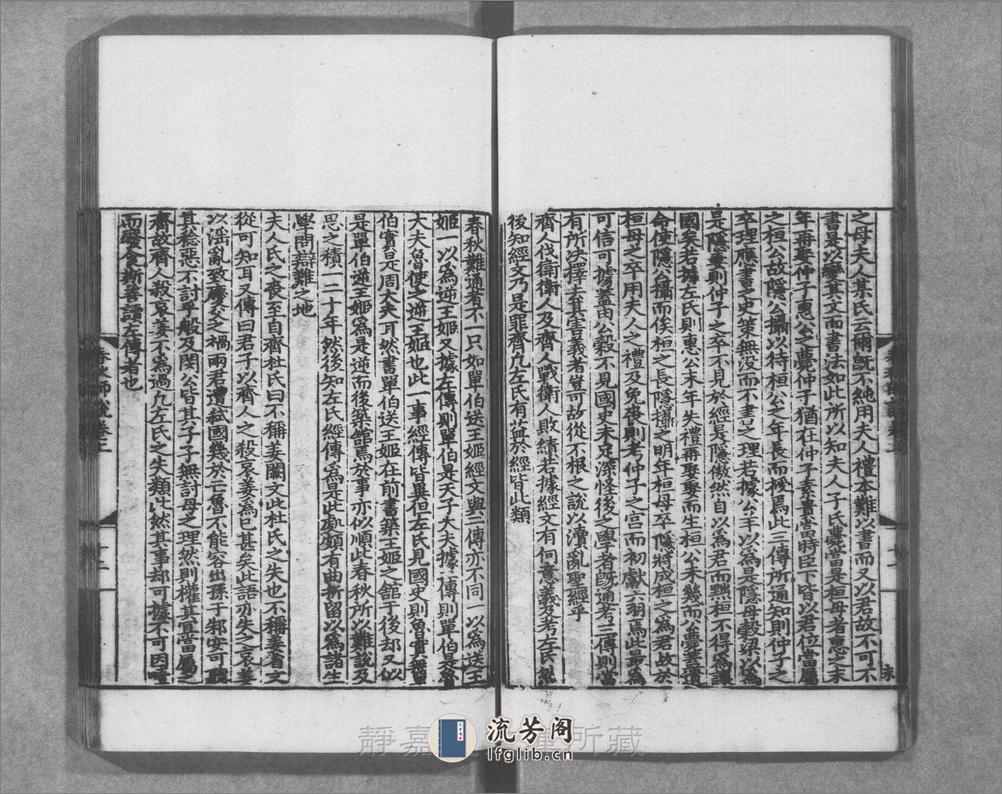 之母夫人某氏云爾旣不純用夫人禮本難以書而又以君故不可不
書是以變其文而書法如此所以知夫人子氏薨當是桓母者惠之末
年再娶仲子惠公之薨仲子猶在仲子素貴當時臣下皆以君位當屬
之桓公故隱公攝以待桓公之年長而授焉此三傳所通知則仲子之
卒理應書之史策無没而不書之理若據公羊以爲是隱母穀梁以爲
是隱妻則仲子之卒不見於經是隱儼然自以爲君而黜桓不得爲讓
國矣若據左氏則惠公末年失禮再娶娶而生桓公未幾而公薨蓋遺
命使隱公攝而俟桓之長隱攝之明年桓母卒隱將成桓之爲君故於
桓母之卒用夫人之禮及免喪則考仲子之宮而初獻六羽焉此最爲
可信可據蓋由公穀不見國史未足深怪後之學者旣通考三傳則當
有所決擇去其害義者豈可故從不根之說以瀆亂聖經乎
齊人伐衛衛人及齊人戰衛人敗績若據經文有何意義及考左氏然
後知經文乃是罪齊凡左氏有益於經皆此類
春秋難通者不一只如單伯送王姬經文與三傳亦不同一以爲送王
姬一以爲逆王姬又據左傳則單伯是天子大夫據二傳則單伯是魯
大夫魯使之逆王姬也此一事經傳皆異但左氏見國史則魯實無單
伯實是周大夫耳然書單伯送王姬在前書築王姬之舘于後却又似
是單伯逆王姬爲是逆而後築舘焉於事亦似順此春秋所以難說及
思之積一二十年然後知左氏經傳爲是此處頗有曲折留以爲諸生
學問辯難之地
夫人氏之喪至自齊杜氏曰不稱姜闕文此杜氏之失也不稱姜省文
從可知耳又傳曰君子以齊人之殺哀姜爲已甚矣此語亦失之哀姜
以淫亂致慶父之禍兩君遭弑國幾於亡魯不能容出孫于邾安可聽
其稔惡不討子般及閔公皆其子子無討母之理然則權其宜當屬之
齊故齊人殺哀姜不爲過凡左氏之失類此然其事却可據不可因噎
而廢食斯善讀左傳者也
春秋師說卷上
流芳阁
lfglib.cn